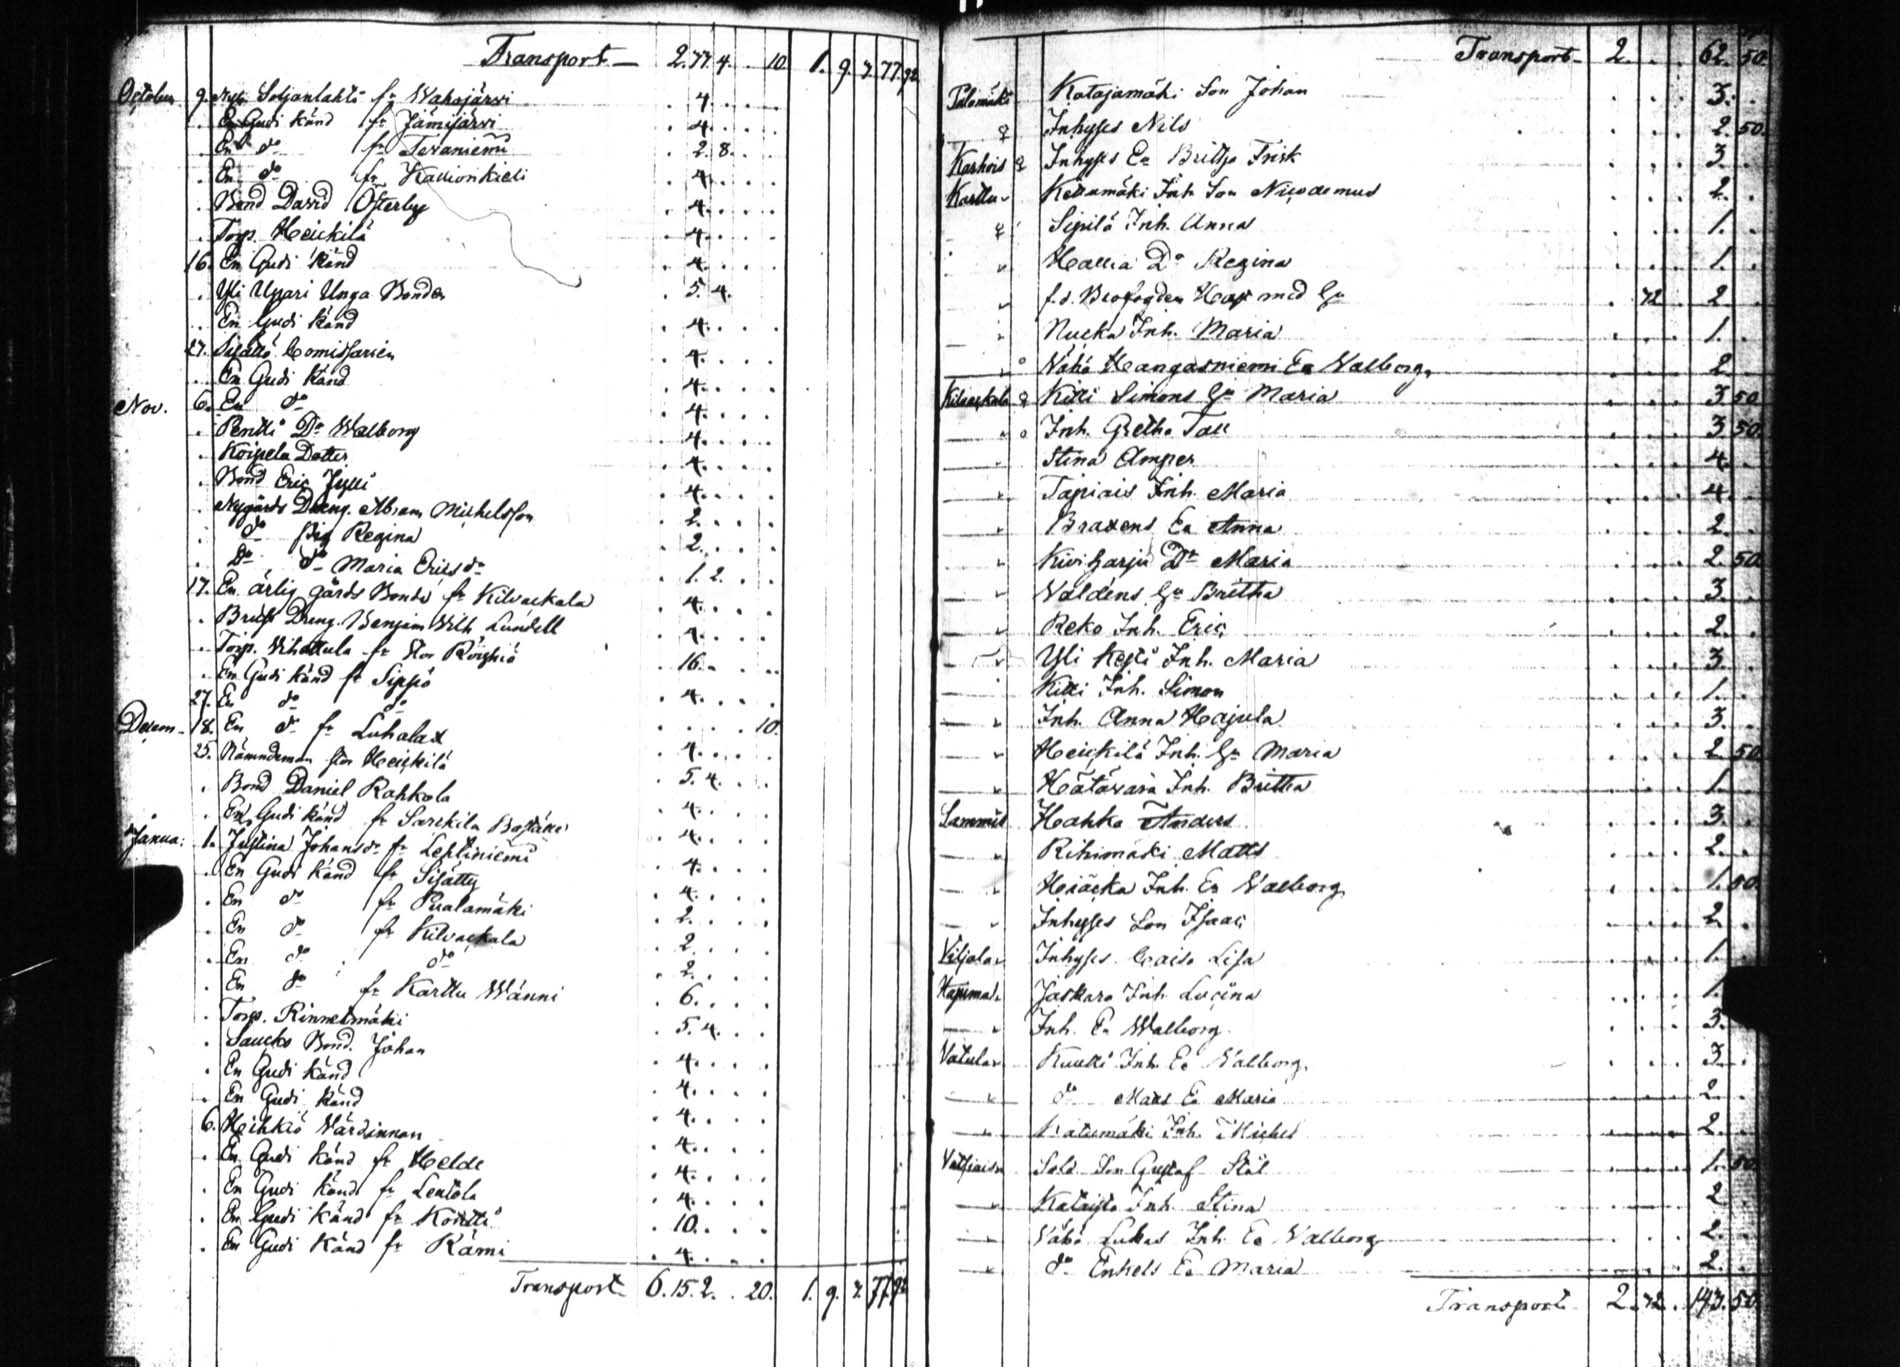 Transport 2. 77. 4. 10. 1. 9. 7. 77. 92
October 9. Nyb. Soljanlahti fr Wahojärvi . 4.
En Gudi känd fr Jämijärvi . 4.
En do fr Tevaniemi . 2. 8.
En do fr Kallionkieli . 4.
Bond David Österby . 4.
Torp. Heickilä . 4.
16. En Gudi känd . 4.
Yli Upari Unga Bonden . 5. 4.
En Gudi känd . 4.
27. Comissarien . 4.
En Gudi känd . 4.
Nov. 6. En do . 4.
Pentti Dr Walborg . 4.
Koipela Dotter . 4.
Bond Eric Jylli . 4.
Nygårds Dreng. Abram Michelsson . 2.
do Pig Regina . 2.
Do do Maria Ericsdr . 1. 2.
17. En ärlig gårds Bonde fr Kilvackala . 4.
Dreng. Benjam Wilh Lundell . 4.
Torp. fr Röyhiö . 16.
En Gudi känd fr Sippjö
27. En do do . 4.
Decem. 18. En do fr Luhalax 10.
25. Nämndeman Heickilä . 4.
Bond Daniel Rahkola . 5. 4.
En Gudi känd fr Sarckila . 4.
Janua: 1. Justina Johansdr fr Leptiniemi . 4.
En Gudi känd fr Sisätty . 4.
En do fr Pualamäki . 4.
En do fr Kilvackala . 2.
En do do . 2.
En do fr Karttu Wänni . 2.
Torp. Rinnetmäki . 6.
Saucko Bond. Johan . 5. 4.
En Gudi känd . 4.
En Gudi känd . 4.
6. Heihkiö Värdinnan . 4.
En Gudi känd fr Helde . 4.
En Gudi känd fr Lentola . 4.
En Gudi känd fr Kontti . 4.
En Gudi känd fr Rämi . 10.
. 4.
Transport 6. 15. 2. 20. 1. 9. 7. 77. 92
Transport 2. 62. 50.
Katajamäki Son Johan 3.
Inhyses Nils 2. 50.
Karhois Inhyses Ea Brittha Frisk 3.
Karttu Kettumäki Inh. Son Nicodemus 2.
Sipilä Inh. Anna 1.
Hallia Dr Regina 1.
f.d. Brofogden med Hu . 72 . 2
Nucka Inh. Maria 1.
Vähä Hangasniemi Ea Walborg. 2
Kilvackala Kitti Simons Hu Maria 3 50
Inh. Gretha Tall 3 50
Stina Amper 4.
Tapiais Inh. Maria 4.
Braxens Ea Anna 2.
Kiviharju Dr Maria 2. 50
Valdens Hu Brittha 3.
Reko Inh. Eric 2.
Yli Kesti Inh. Maria 3
Kitti Inh. Simon 1.
Inh. Anna Hajula 3.
Heickilä Inh. Hu Maria 2. 50
Hätävara Inh. Brittha 1.
Sammis Hahko Anders 3.
Rihimäki Matts 2.
Inh. Ea Walborg 1. 50.
Inhyses Son Isaac 2
Viljala Inhyses Caisa Lisa 1.
Jaskara Inh. Lovina 1.
Inh. Ea Walborg. 3.
Vatula Kuutti Inh. Ea Walborg. 3.
do Matts Ea Maria 2.
Ratumäki Inh. Michel 2.
Vatsiais Sold. Son Gustaf Stål 1. 50
Kataisto Inh. Stina 2.
Vähä Lukas Inh. Ea Walborg 2.
do Enkels Ea Maria 2.
Transport 2. 72. 143. 50